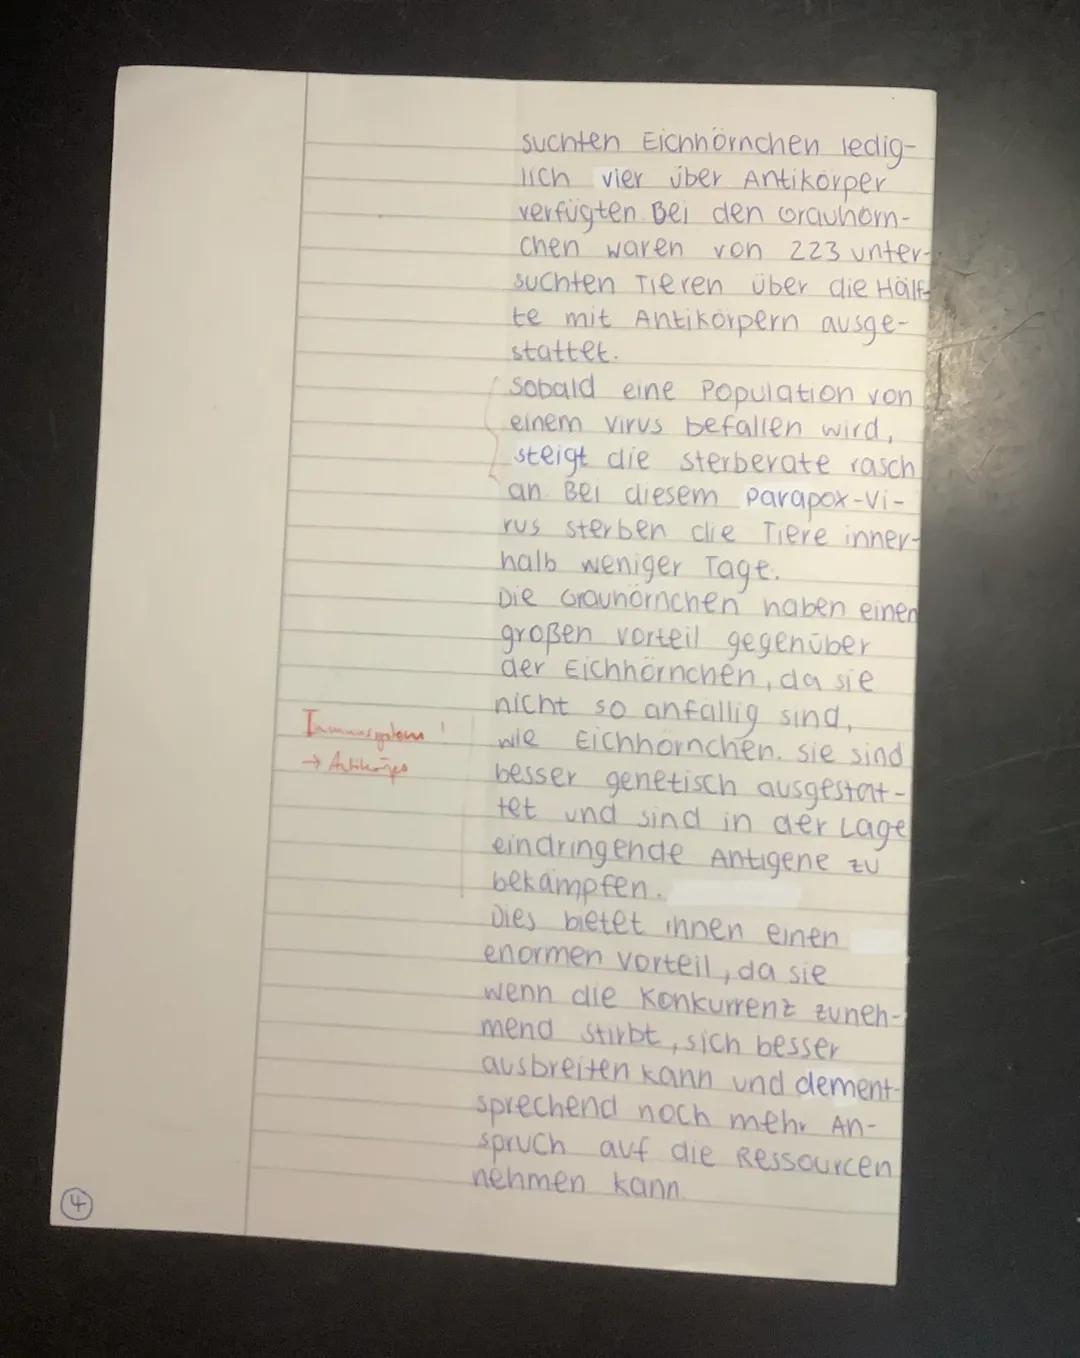 suchten Eichhörnchen ledig-
lich vier über Antikörper
verfügten. Bei den Grauhörn-
chen waren von 223 unter-
suchten Tieren über die Hälf-
te mit Antikörpern ausge-
stattet.
Sobald eine Population von
einem Virus befallen wird,
steigt die Sterberate rasch
an. Bei diesem Parapox-Vi-
rus sterben die Tiere inner-
halb weniger Tage.
Die Grauhörnchen haben einen
großen Vorteil gegenüber
der Eichhörnchen, da sie
nicht so anfällig sind,
wie Eichhörnchen. Sie sind
besser genetisch ausgestat-
tet und sind in der Lage
eindringende Antigene zu
bekämpfen.
Dies bietet ihnen einen
enormen Vorteil, da sie
wenn die Konkurrenz zuneh-
mend stirbt, sich besser
ausbreiten kann und dement-
sprechend noch mehr An-
spruch auf die Ressourcen
nehmen kann.
Immunsystem!
→ Antikörper
4